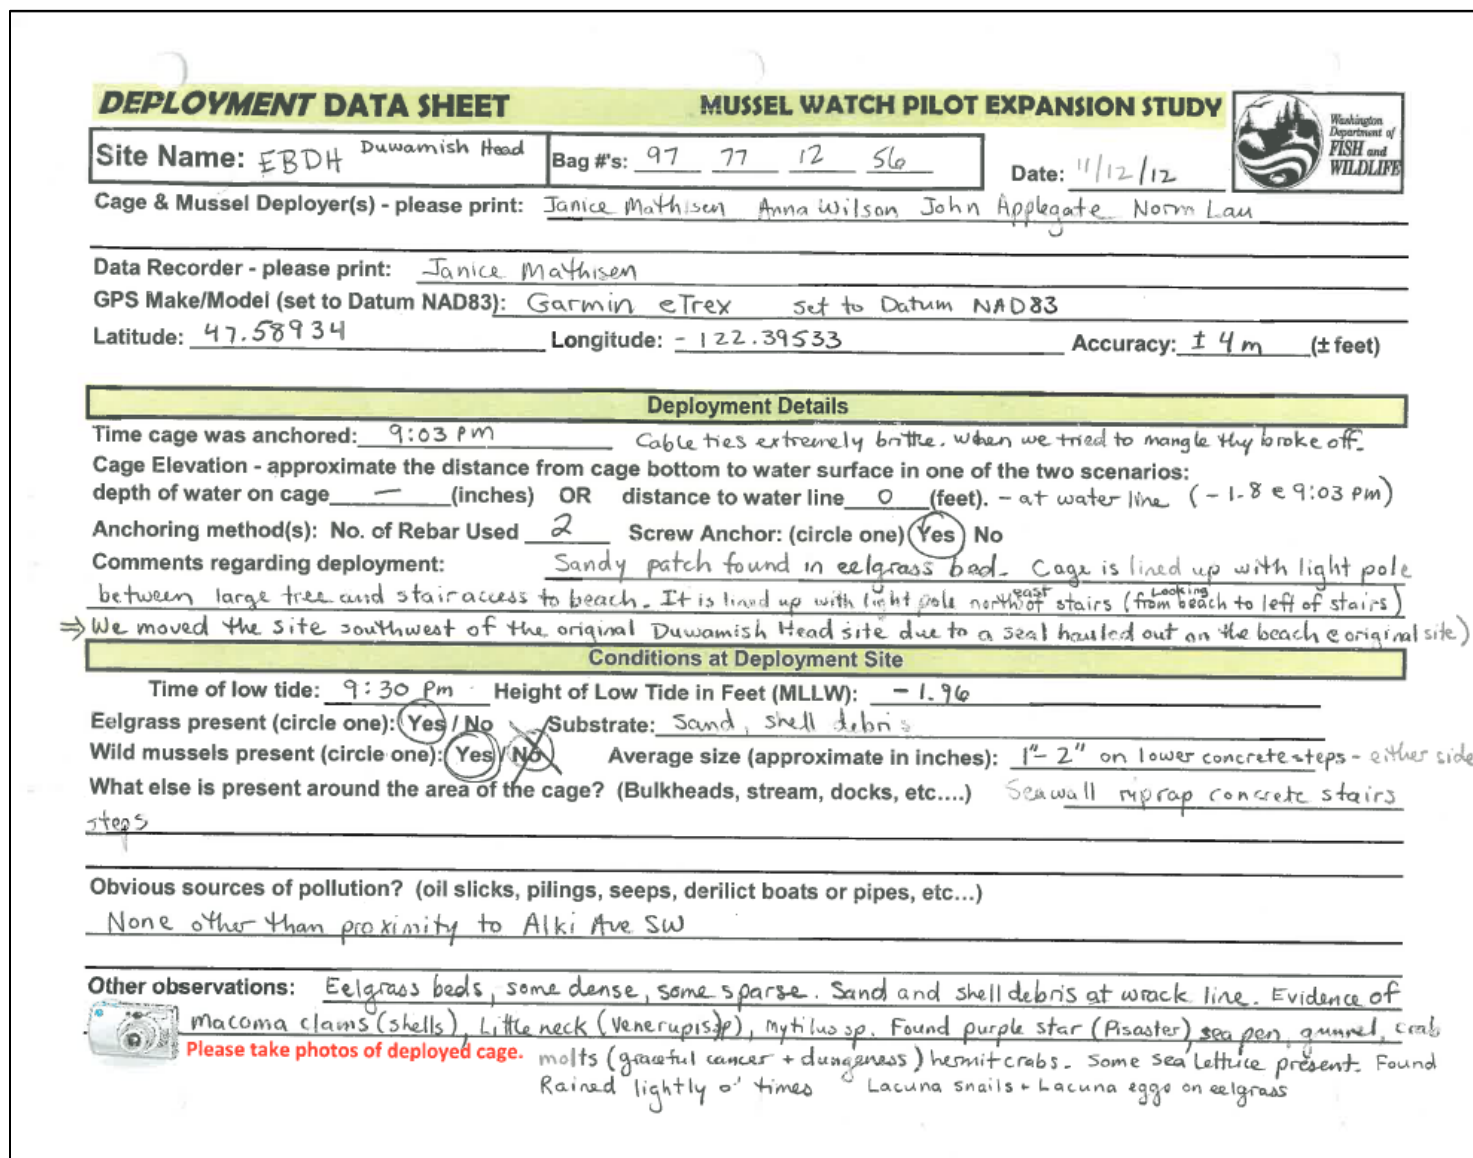 DEPLOYMENT DATA SHEET MUSSEL WATCH PILOT EXPANSION STUDY
Washington
Department of
FISH and
WILDLIFE
Site Name: EBDH Duwamish Head Bag #'s: 97 77 12 56 Date: 11/12/12
Cage & Mussel Deployer(s) - please print: Janice Mathisen Anna Wilson John Applegate Norm Lau
Data Recorder - please print: Janice Mathisen
GPS Make/Model (set to Datum NAD83): Garmin eTrex set to Datum NAD83
Latitude: 47.58934 Longitude: - 122.39533 Accuracy: ± 4 m (± feet)
Deployment Details
Time cage was anchored: 9:03 PM Cable ties extremely brittle. When we tried to mangle thy broke off.
Cage Elevation - approximate the distance from cage bottom to water surface in one of the two scenarios:
depth of water on cage — (inches) OR distance to water line 0 (feet). - at water line (-1.8 @ 9:03 PM)
Anchoring method(s): No. of Rebar Used 2 Screw Anchor: (circle one) Yes No
Comments regarding deployment: Sandy patch found in eelgrass bed. Cage is lined up with light pole
between large tree and stair access to beach. It is lined up with light pole northeast of stairs (Looking from beach to left of stairs)
⇒ We moved the site southwest of the original Duwamish Head site due to a seal hauled out on the beach @ original site)
Conditions at Deployment Site
Time of low tide: 9:30 Pm Height of Low Tide in Feet (MLLW): - 1.96
Eelgrass present (circle one): Yes / No Substrate: Sand, shell debris
Wild mussels present (circle one): Yes / No Average size (approximate in inches): 1"- 2" on lower concrete steps - either side
What else is present around the area of the cage? (Bulkheads, stream, docks, etc....) Seawall riprap concrete stairs
steps
Obvious sources of pollution? (oil slicks, pilings, seeps, derilict boats or pipes, etc...)
None other than proximity to Alki Ave SW
Other observations: Eelgrass beds, some dense, some sparse. Sand and shell debris at wrack line. Evidence of
Macoma clams (shells), Little neck (Venerupis sp), Mytilus sp. Found purple star (Pisaster) sea pen, gunnel, crab
Please take photos of deployed cage. molts (graceful cancer + dungeness) hermit crabs. Some sea lettuce present. Found
Rained lightly times Lacuna snails + Lacuna eggs on eelgrass